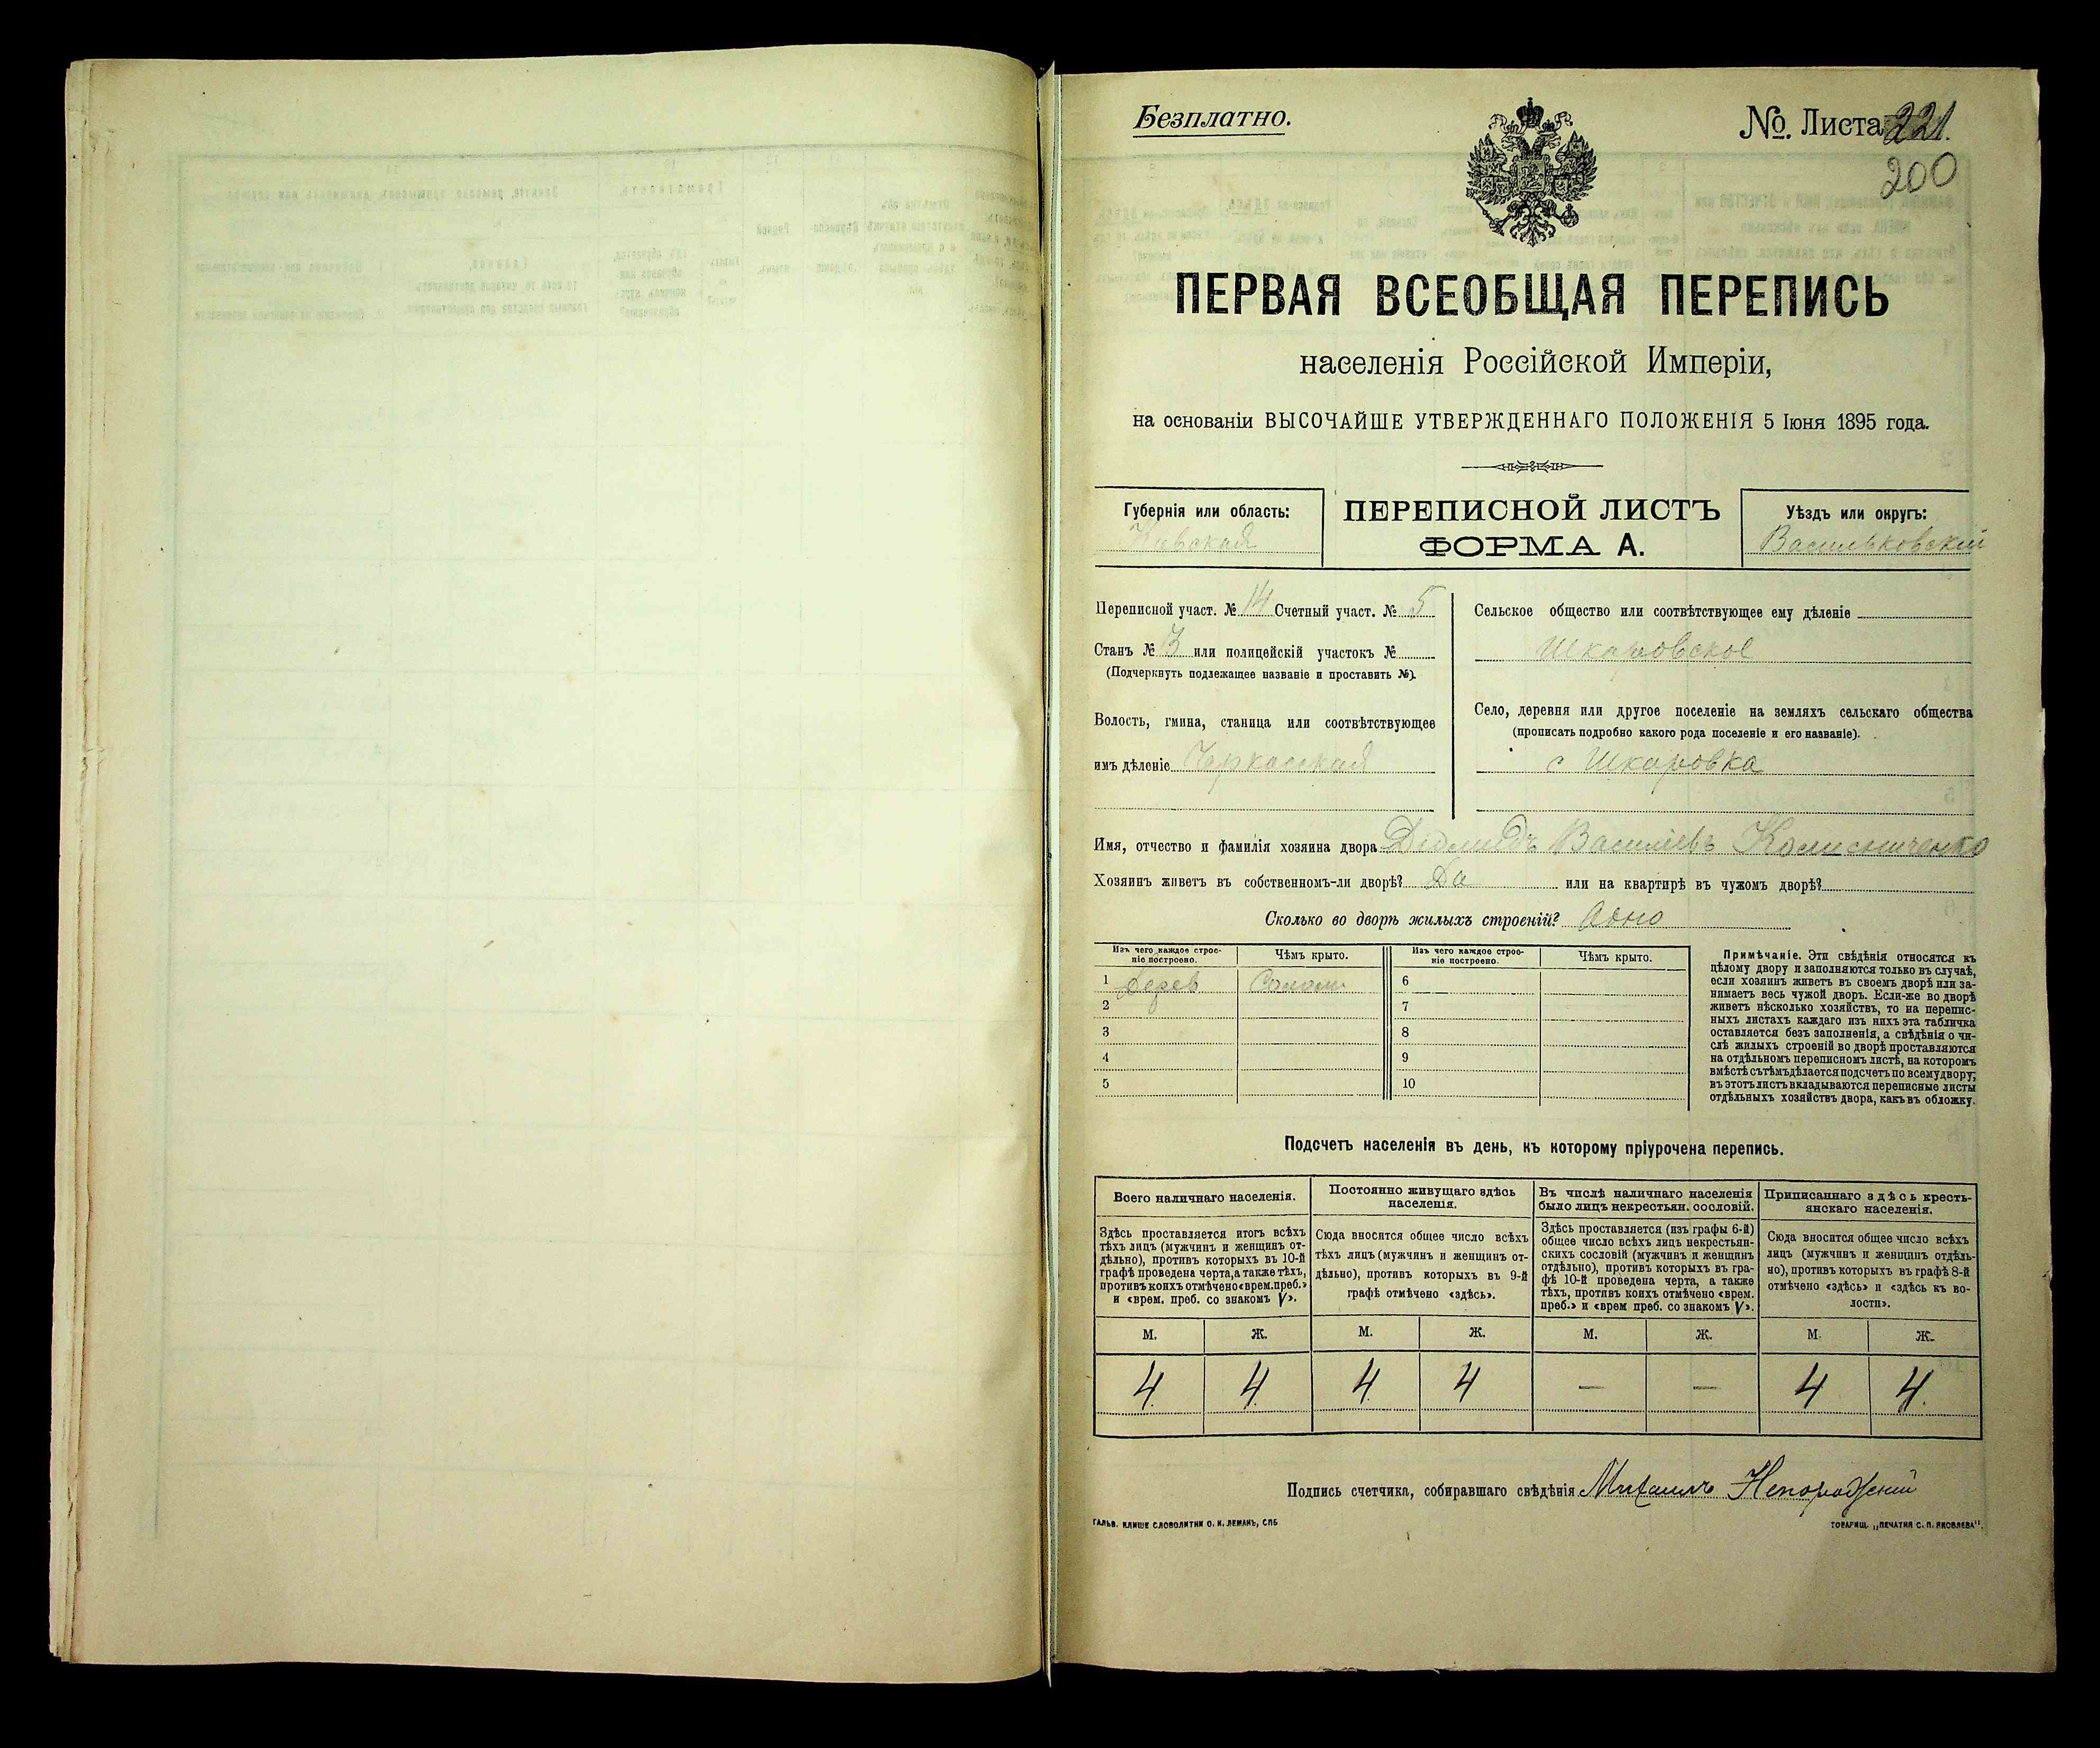 Безплатно.
№. Листа 221.
200
ПЕРВАЯ ВСЕОБЩАЯ ПЕРЕПИСЬ
населенія Россійской Имперіи,
на основаніи ВЫСОЧАЙШЕ УТВЕРЖДЕННАГО ПОЛОЖЕНІЯ 5 Іюня 1895 года.
Губернія или область:
Кіевская
ПЕРЕПИСНОЙ ЛИСТЪ
ФОРМА А.
Уѣздъ или округъ:
Васильковскій
Переписной участ. № 14 Счетный участ. № 5
Станъ № 3 или полицейскій участокъ №
(Подчеркнуть подлежащее названіе и проставить №).
Волость, гмина, станица или соотвѣтствующее
имъ дѣленіе Черкасская
Сельское общество или соотвѣтствующее ему дѣленіе
Шкаровское
Село, деревня или другое поселеніе на земляхъ сельскаго общества
(прописать подробно какого рода поселеніе и его названіе).
с Шкаровка
Имя, отчество и фамилія хозяина двора Васильевъ
Хозяинъ живетъ въ собственномъ-ли дворѣ? Да или на квартирѣ въ чужомъ дворѣ?
Сколько во дворѣ жилыхъ строеній? Одно
Изъ чего каждое строе-
ніе построено.
Чѣмъ крыто.
Изъ чего каждое строе-
ніе построено.
Чѣмъ крыто.
1 Дерев Солом
6
2
7
3
8
4
9
5
10
Примѣчаніе. Эти свѣдѣнія относятся къ
цѣлому двору и заполняются только въ случаѣ,
если хозяинъ живетъ въ своемъ дворѣ или за-
нимаетъ весь чужой дворъ. Если-же во дворѣ
живетъ нѣсколько хозяйствъ, то на перепис-
ныхъ листахъ каждаго изъ нихъ эта табличка
оставляется безъ заполненія, а свѣдѣнія о чи-
слѣ жилыхъ строеній во дворѣ проставляются
на отдѣльномъ переписномъ листѣ, на которомъ
вмѣстѣ съ тѣмъ дѣлается подсчетъ по всему двору;
въ этотъ листъ вкладываются переписные листы
отдѣльныхъ хозяйствъ двора, какъ въ обложку.
Подсчетъ населенія въ день, къ которому пріурочена перепись.
Всего наличнаго населенія.
Здѣсь проставляется итогъ всѣхъ
тѣхъ лицъ (мужчинъ и женщинъ от-
дѣльно), противъ которыхъ въ 10-й
графѣ проведена черта, а также тѣхъ,
противъ коихъ отмѣчено «врем. преб.»
и «врем. преб. со знакомъ V».
Постоянно живущаго здѣсь
населенія.
Сюда вносится общее число всѣхъ
тѣхъ лицъ (мужчинъ и женщинъ от-
дѣльно), противъ которыхъ въ 9-й
графѣ отмѣчено «здѣсь».
Въ числѣ наличнаго населенія
было лицъ некрестьян. сословій.
Здѣсь проставляется (изъ графы 6-й)
общее число всѣхъ лицъ некрестьян-
скихъ сословій (мужчинъ и женщинъ
отдѣльно), противъ которыхъ въ гра-
фѣ 10-й проведена черта, а также
тѣхъ, противъ коихъ отмѣчено «врем.
преб.» и «врем преб. со знакомъ V».
Приписаннаго здѣсь кресть-
янскаго населенія.
Сюда вносится общее число всѣхъ
лицъ (мужчинъ и женщинъ отдѣль-
но), противъ которыхъ въ графѣ 8-й
отмѣчено «здѣсь» и «здѣсь къ во-
лости».
М. Ж. М. Ж. М. Ж. М. Ж.
4 4 4 4 — — 4 4.
Подпись счетчика, собиравшаго свѣдѣнія Михаилъ
ГАЛЬВ. КЛИШЕ СЛОВОЛИТНИ О. И. ЛЕМАНЪ, СПБ
ТОВАРИЩ. „ПЕЧАТНЯ С. П. ЯКОВЛЕВА".